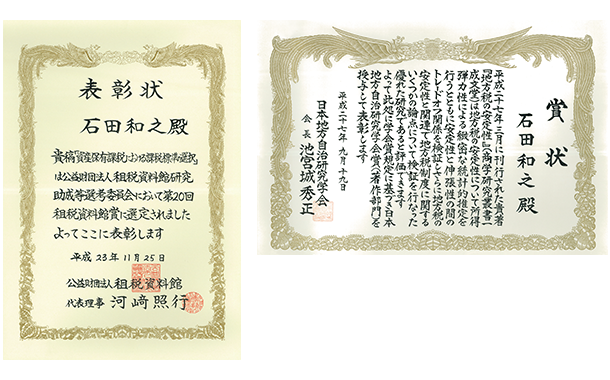 表彰状
石田和之殿
貴稿「資産保有課税における課税標準の選択」
は公益財団法人租税資料館研究
助成等選考委員会において第20回
租税資料館賞に選定されました
よってここに表彰します
平成23年11月25日
公益財団法人租税資料館
代表理事 河﨑照行
賞状
石田和之殿
平成二十七年三月に刊行された貴著
『地方税の安定性』(商学研究叢書
成文堂)は地方税の安定性について所得
弾力性による緻密な統計的推定を
行うとともに安定性と伸張性の間の
トレードオフ関係を検証しさらに地方税の
安定性と関連で地方税制度に関する
いくつかの論点について検証を行なった
優れた研究であると評価できます
よって此処に学会賞規定に基づき日本
地方自治研究学会賞(著作部門)を
授与して表彰します
平成二十七年九月十九日
日本地方自治研究学会
会長 池宮城秀正